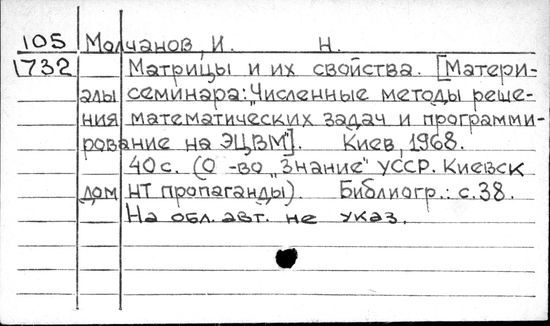 105 Молчанов, И. Н.
1732 Матрицы и их свойства. [Матери-
алы семинара: "Численные методы реше-
ния математических задач и программи-
рование на ЭЦВМ"]. Киев, 1968.
40 с. (О-во "Знание" УССР. Киевск
дом НТ пропаганды). Библиогр.: с. 38.
На обл. авт. не указ.